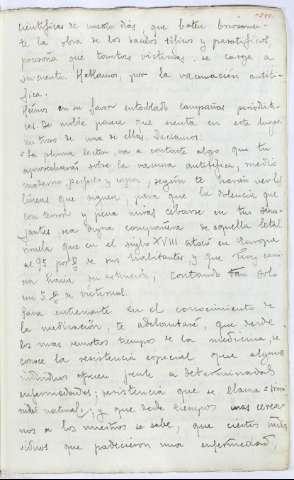 científicas de nuestros días, que baten
la obra de los bacilos tíficos y paratíficos,
ponzoña que tantas víctimas se carga a
su cuenta. Hablamos por la vacunación antití-
fica.
Hemos en su favor entoblado campañas periodísti-
cas de noble
en tras de una de ellas. Decíamos:
«La pluma lector va a contarte algo que tu
aprovecharás sobre la vacuna antitífica, medio
moderno, perfecto y según te harán ver las
líneas que siguen, para que la dolencia que
con terror y pena miras cebarse en tus seme-
jantes sea digna compañera de aquella letal
viruela que en el siglo XVIII atacó en Europa
al 95 por % de sus habitantes y que hoy cami-
na hacia su extinción, contando tan solo
un 5 % de víctimas.
Para entrenarte en el conocimiento de
la medicación, te adelantaré, que desde
los mas remotos tiempos de la medicina, se
conoce la resistencia especial que algunos
individuos ofrecen frente a determinadas
enfermedades; resistencia que se llama inmu-
nidad natural; y que desde tiempos mas cerca-
nos a los nuestros se sabe, que ciertos indi-
viduos que padecieron una enfermedad,